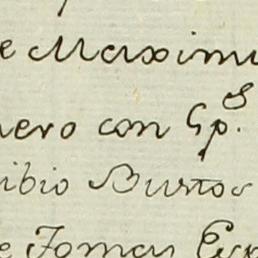 e Maximi
nero con Gp.s
ibio Burtos
e Tomas Esp